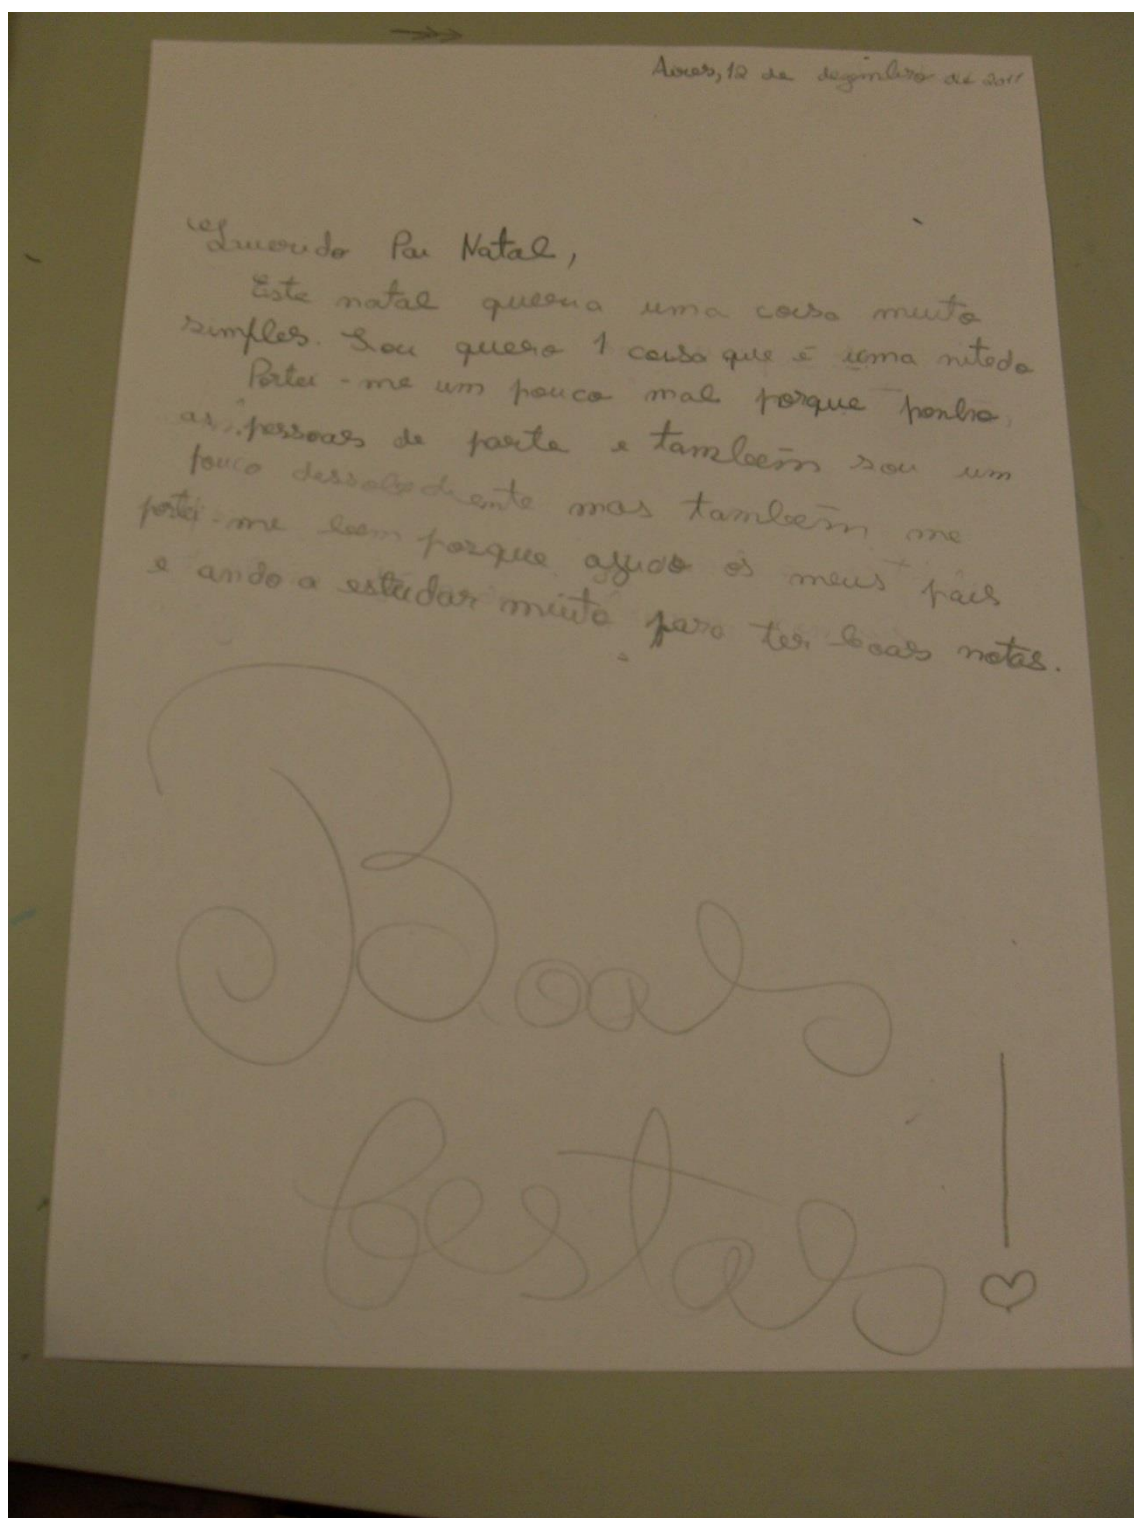 Aires, 12 de dezembro de 2011
Querido Pai Natal,
Este natal queria uma coisa muito
simples. Sou quero 1 coisa que é uma
Portei-me um pouco mal porque ponho
as pessoas de parte e também sou um
pouco dessobediente mas também me
portei-me bem porque ajudo os meus pais
e ando a estudar muito para ter boas notas.
Boas
festas!